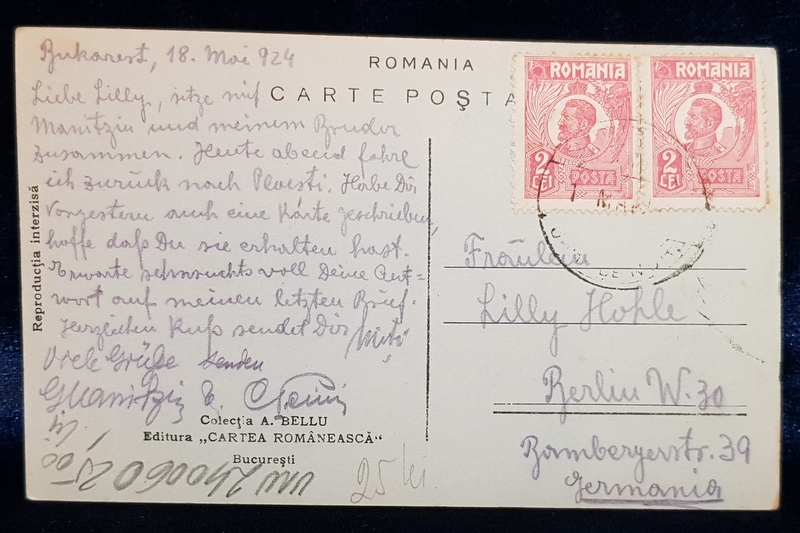 Bukarest, 18. Mai 924
Liebe Lilly, sitze mit
Manitziu und meinem Bruder
zusammen. Heute abend fahre
ich zurück nach Ploesti. Habe Dir
vorgestern auch eine Karte geschrieben,
hoffe daß Du sie erhalten hast.
Erwarte sehnsuchts voll Deine Ant=
wort auf meinen letzten Brief.
Herzlichen Kuß sendet Dir
Viele Grüße senden
ROMANIA
CARTE POȘTA
ROMANIA
2 LEI POSTA
ROMANIA
2 LEI POSTA
Fräulein
Lilly Hohle
Berlin W. 30
Bambergerstr. 39
Germania
Reproducția interzisă
Colecția A. BELLU
Editura „CARTEA ROMÂNEASCĂ"
București
25 lei